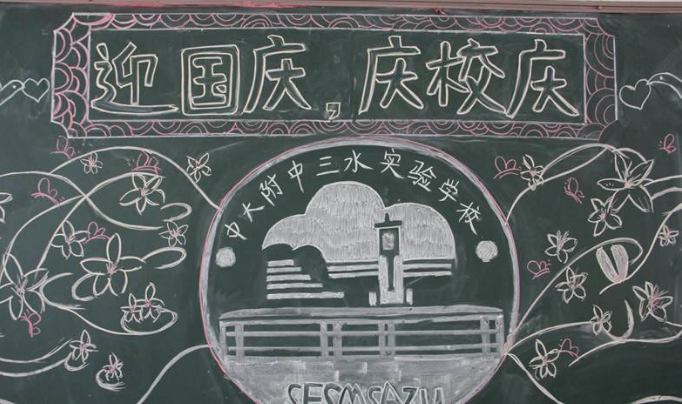 迎国庆,庆校庆
中大附中三水实验学校
SFSMSAZU